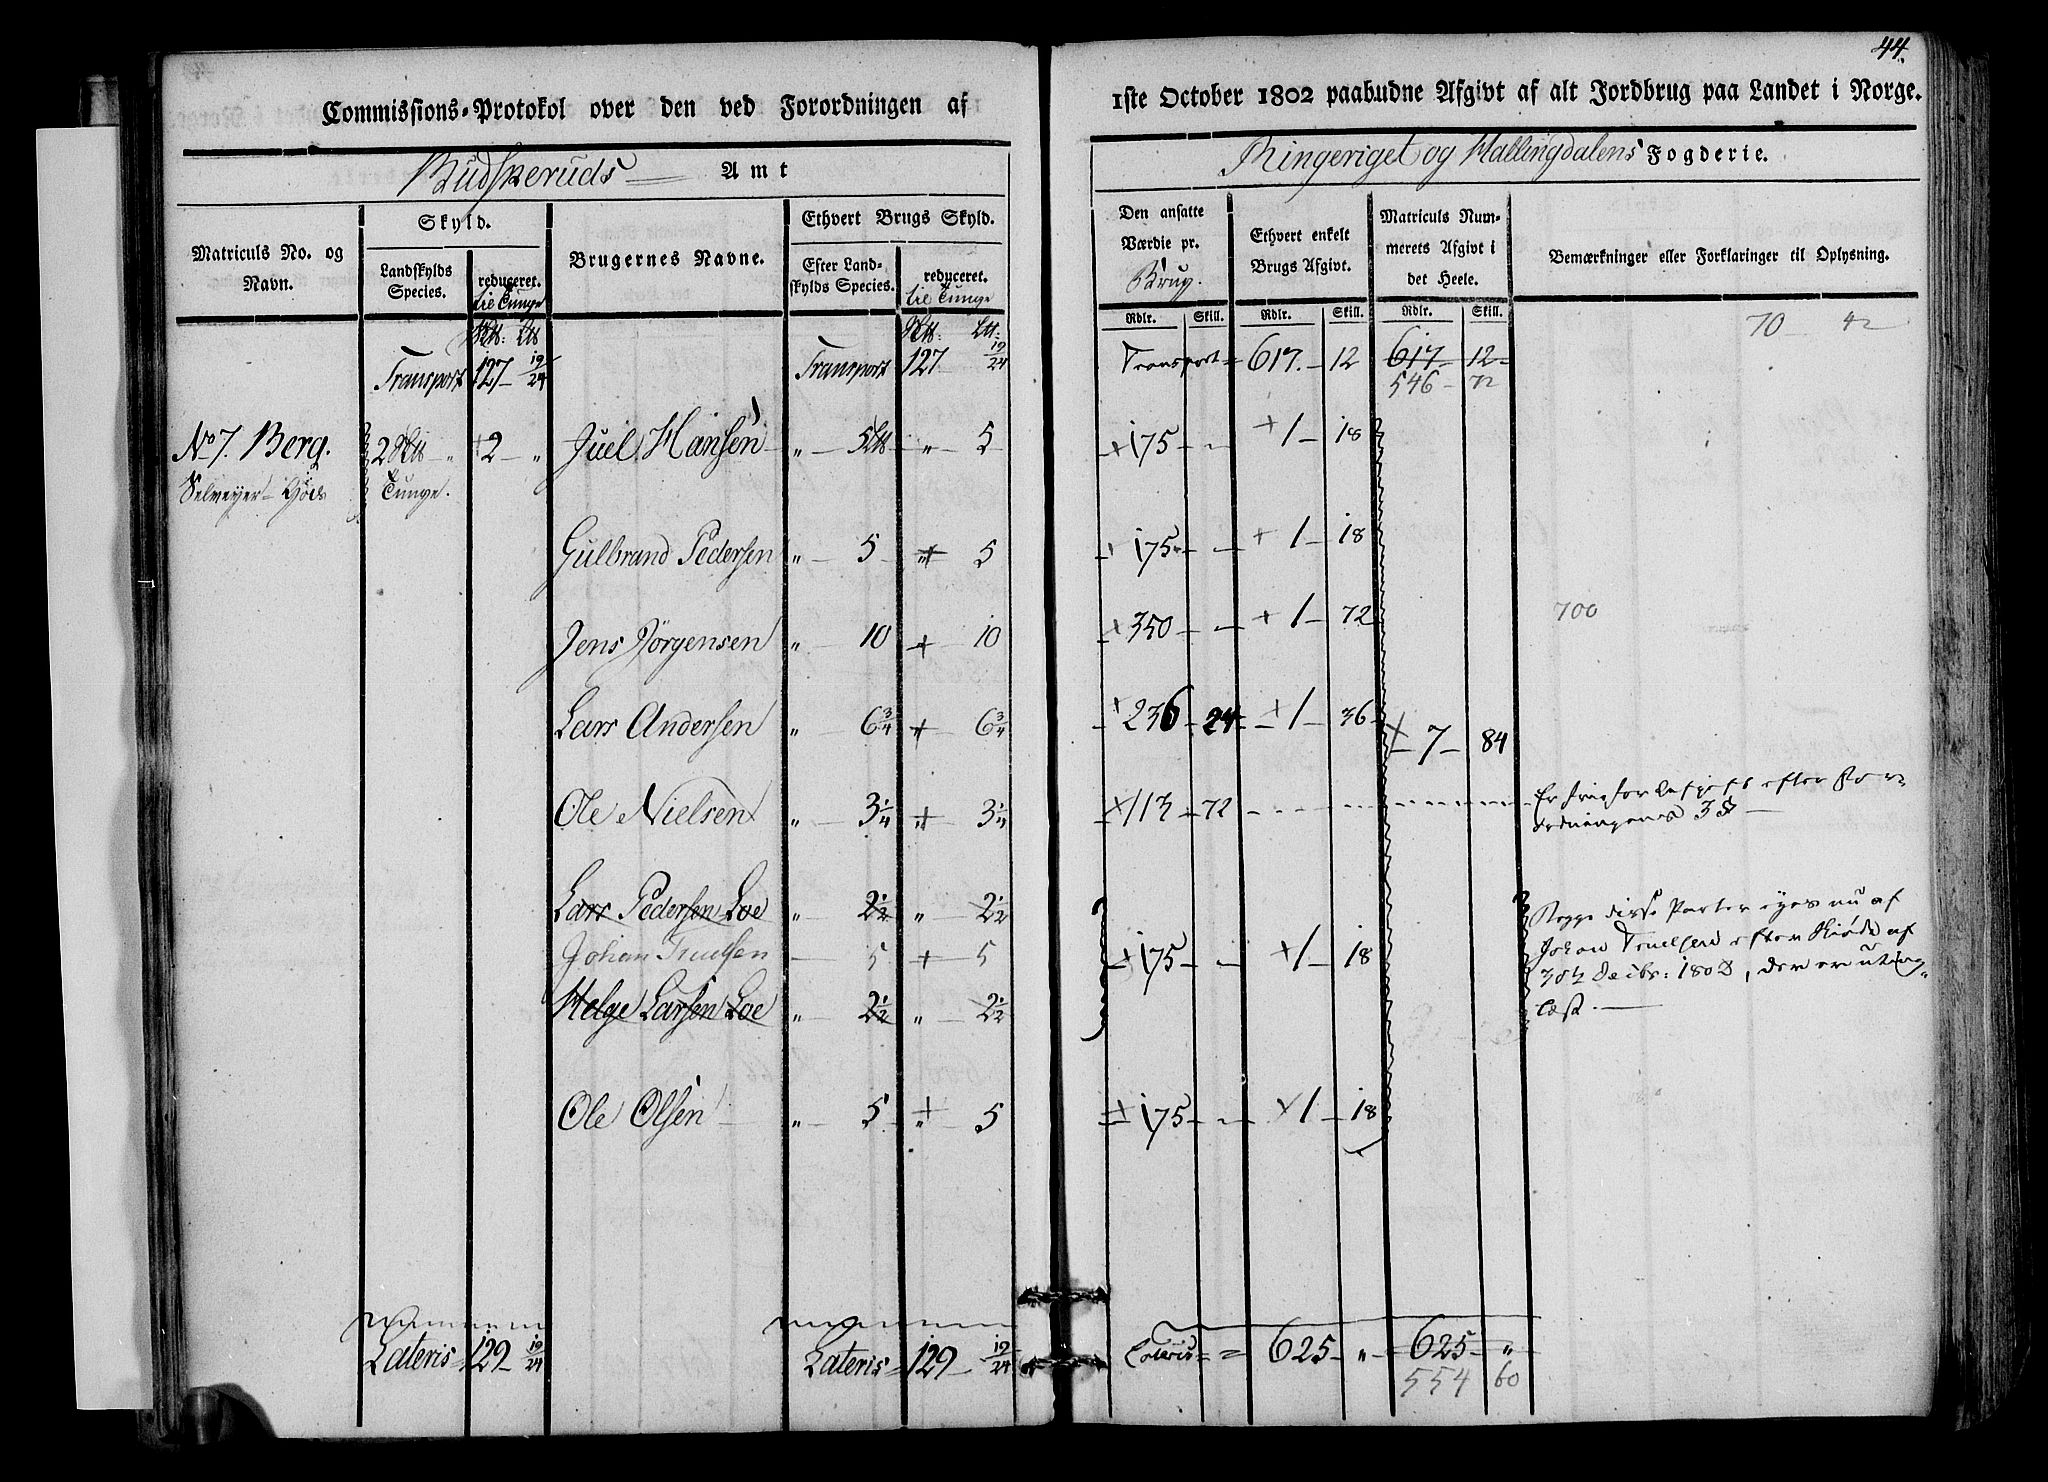 44.
Commissions-Protokol over den ved Forordningen af
1ste October 1802 paabudne Afgivt af alt Jordbrug paa Landet i Norge.
Budskeruds Amt
Ringeriget og Hallingdalens Fogderie.
Matriculs No. og Navn.
Skyld.
Landskylds Species.
reduceret. til Tunge
Brugernes Navne.
Ethvert Brugs Skyld.
Efter Landskylds Species.
reduceret. til Tunge
Den ansatte Værdie pr. Brug.
Ethvert enkelt Brugs Afgivt.
Matriculs Nummerets Afgivt i det Heele.
Bemærkninger eller Forklaringer til Oplysning.
Rdlr. Skill. Rdlr. Skill. Rdlr. Skill.
70 - 42
Transport 127 - 19/24 Transport 127 19/24 Transport = 617. - 12 617 - 12
546 - 72
No 7. Berg. 2 - „ + 2 - „ Juel Hansen „ - 5 „ - 5 + 175 - - + 1 - 18
Tunge.
Gulbrand Pedersen „ - 5 - + 5 + 175 - - + 1 - 18
Jens Jörgensen „ - 10 + 10 + 350 - - + 1 - 72 700
Lars Andersen „ - 6 3/4 + 6 3/4 + 236 - 24 - + 1 - 36 + 7 - 84
Ole Nielsen „ - 3 1/4 + 3 1/4 + 113 - 72 Er fri for Afgift efter For-
ordningens 3 §
Lars Pedersen Loe „ - 2 1/2 „ - 2 1/2
Begge disse Parter eyes nu af
Johan Truelsen - 5 + 5 + 175 - - + 1 - 18
Johan Truelsen efter Skiøde af
30t Decbr: 1802, der er uting-
Helge Larsen Loe „ - 2 1/2 „ - 2 1/2
læst.
Ole Olsen - „ - 5 + 5 + 175 - - + 1 - 18
Lateris 129 - 19/24 Lateris 129 - 19/24 Lateris = 625 - „ - 625 - „
554 60